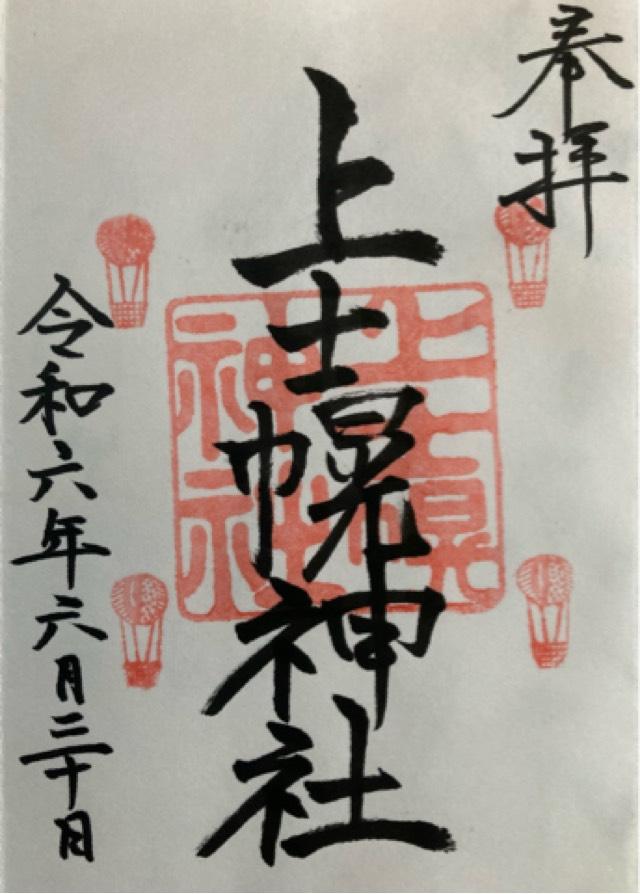 奉拝
上士幌神社
上士幌
神社
令和六年六月三十日